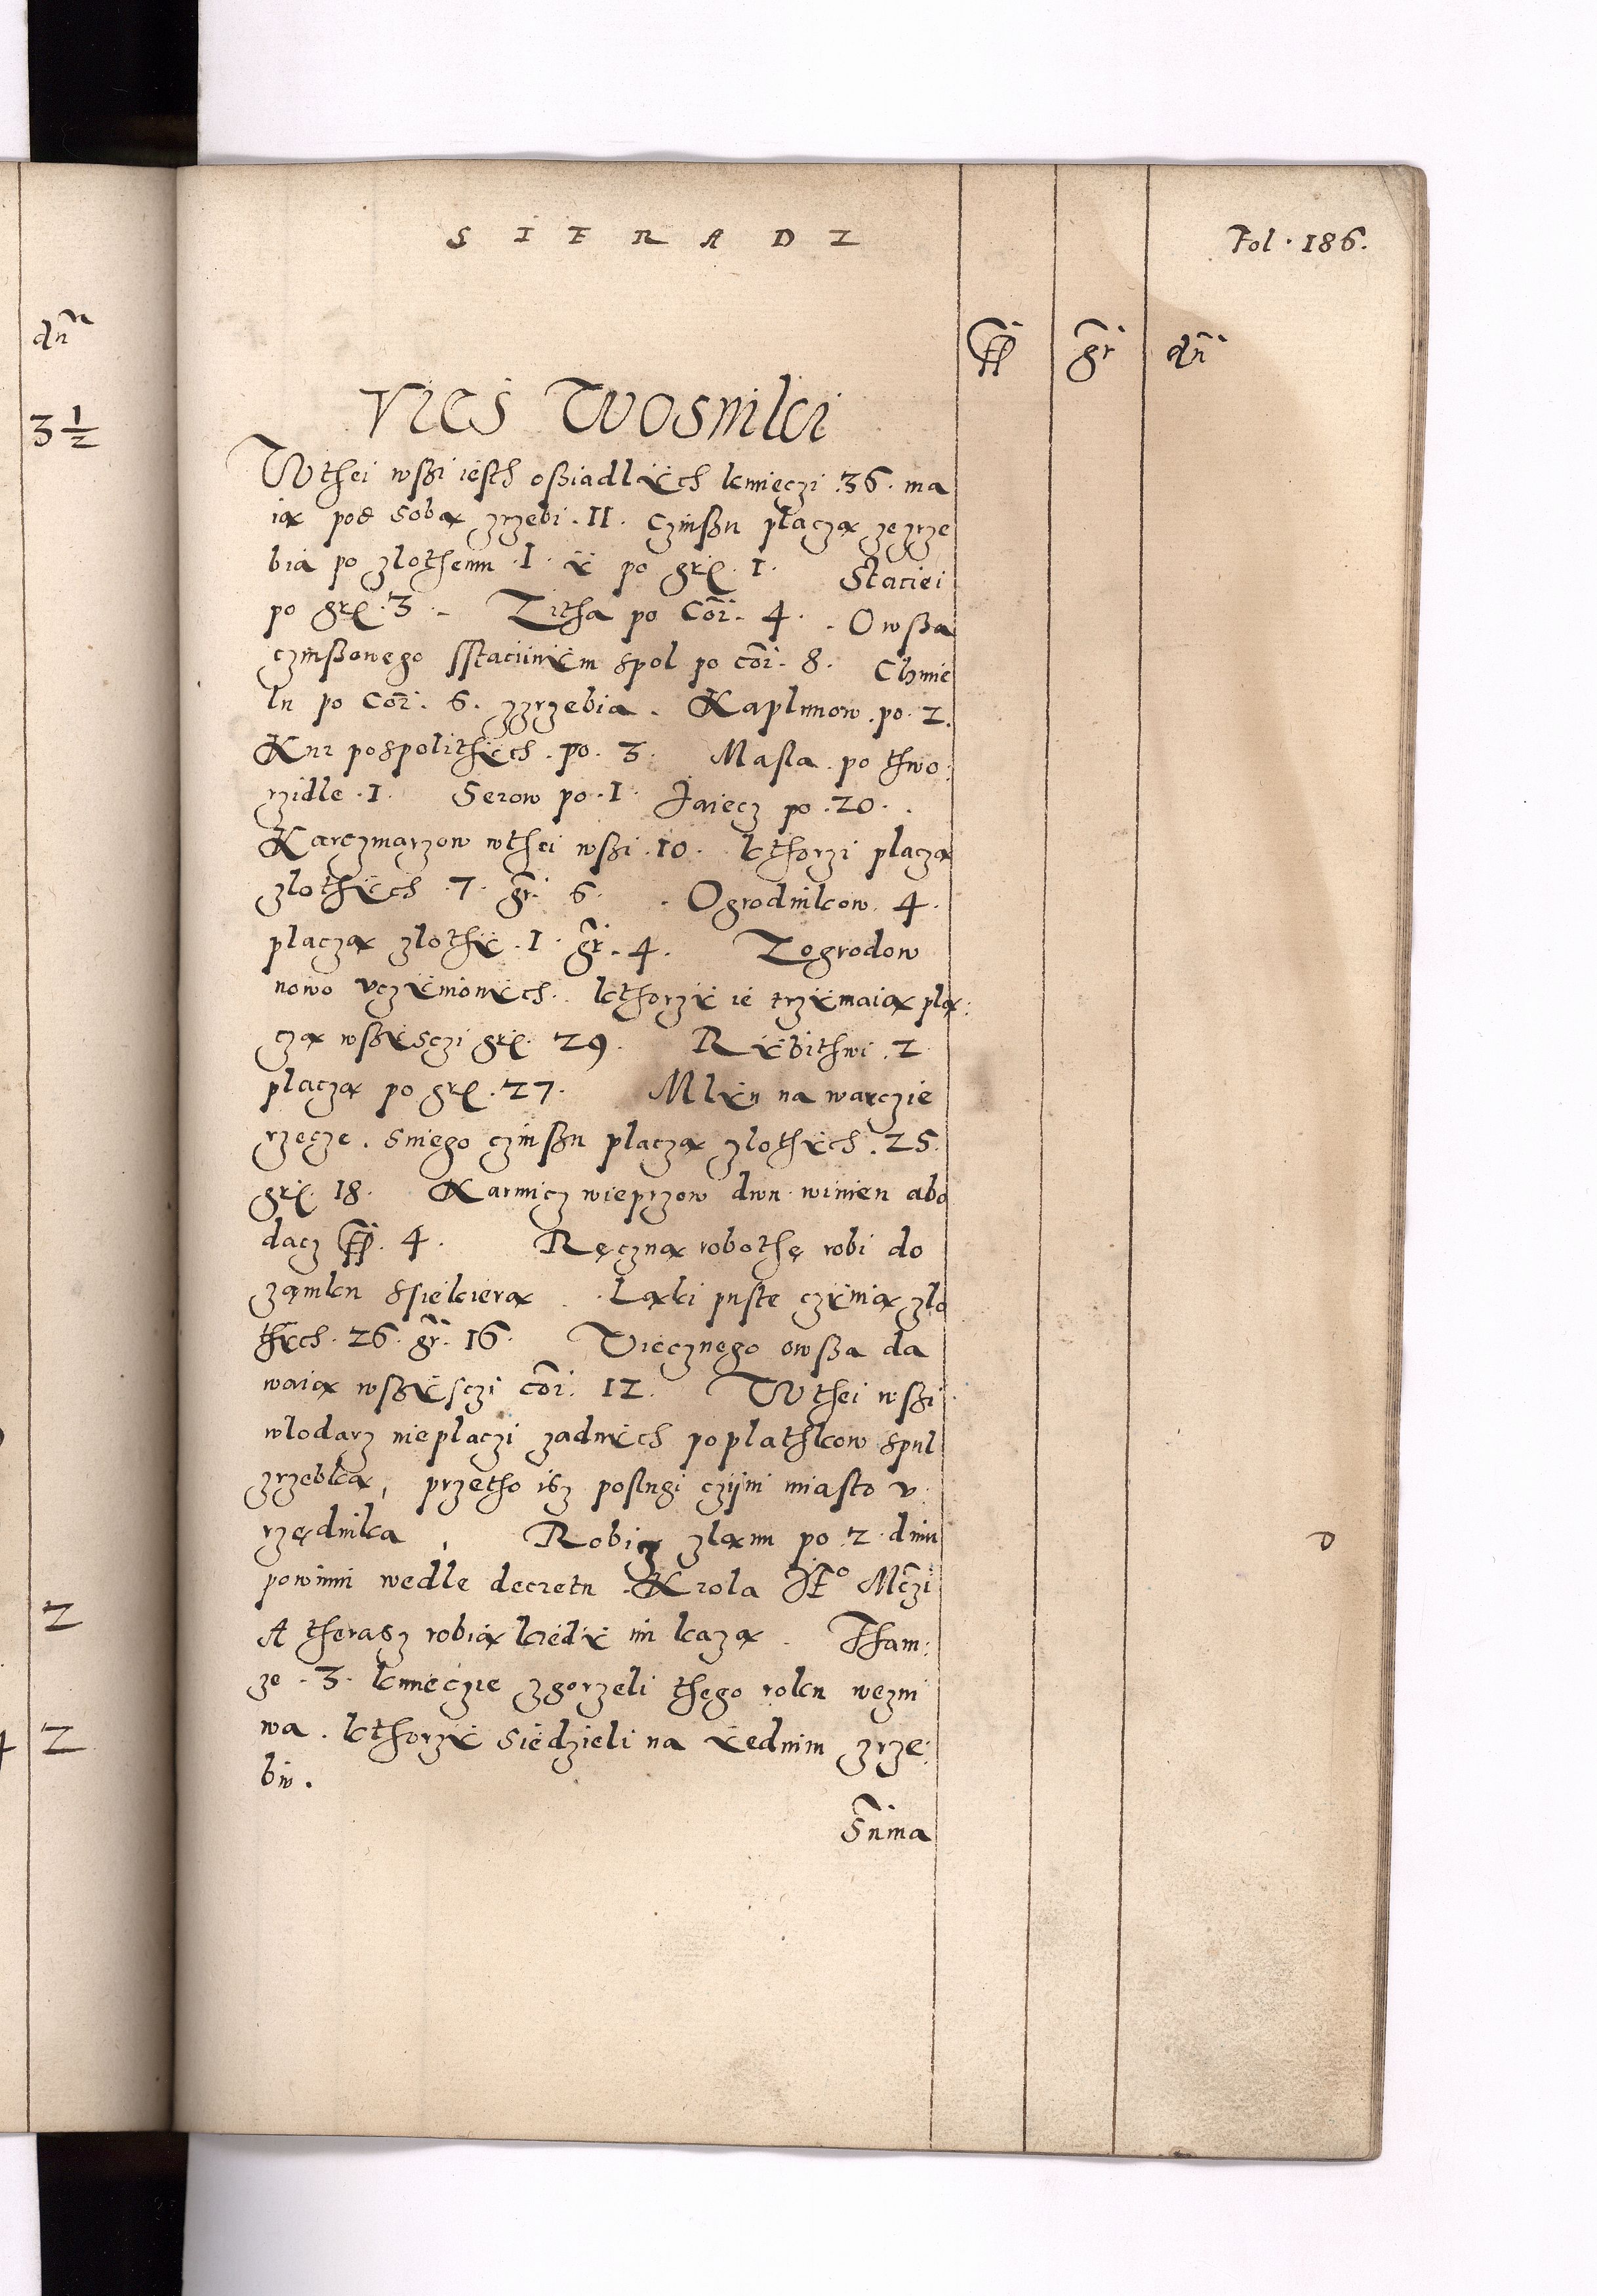 S I E R A D Z
Fol · 186.
fl gr dn
VIES WOSNIKI
W thei wßi iesth oßiadlÿch kmieczi · 36 · ma
ią pod sobą zrzebi · 11 · Czinßu płaczą ze zrze
bia po zlothemu · 1 · ÿ po grl · 1 · Staciei
po grl · 3 · Zitha po Cor · 4 · Owßa
czinßowego sstaciinÿm spol po cor · 8 · Chmie
lu po Cor · 6 · zzrzebia · Kaplunow · po · 2 ·
Kur pospolithÿch · po · 3 · Masla · po thwo:
rzidle · 1 · Serow po · 1 · Jaiecz po · 20 ·
Karczmarzow wthei wßi · 10 · kthorzi placzą
zlothÿch · 7 · gr · 6 · Ogrodnikow · 4 ·
placzą zlothÿ · 1 · gr · 4 · Zogrodow
nowo uczÿnionÿch · kthorzÿ ie trzÿmaią pla:
czą wßÿsczi grl · 29 · Rÿbithwi · 2
placzą po grl · 27 · Mlÿn na warczie
rzecze · sniego czinßu placzą zlothÿch · 25
grl · 18 · Karmicz wieprzow dwu winien abo
dacz fl · 4 · Ręczną robothę robi do
zamku ssiekierą · Ląki puste czÿnią zło
thÿch · 26 · gr · 16 · Viecznego owßa da
waią wßÿsczi cor · 12 · W thei wßi
wlodarz nieplaczi zadnÿch poplathkow spul
zrzebką, przetho isz poslugi czÿni miasto u
rzędnika, Robicz zlanu po · 2 · dniu
powinni wedle decretu Krola JE° Mczi
A therasz robią kiedÿ im kazą · Tham:
ze · 3 · kmieczie zgorzeli thego roku wezni
wa · kthorzÿ siedzieli na ÿednim zrze:
biu ·
Suma
dn
3 1/2
2
2